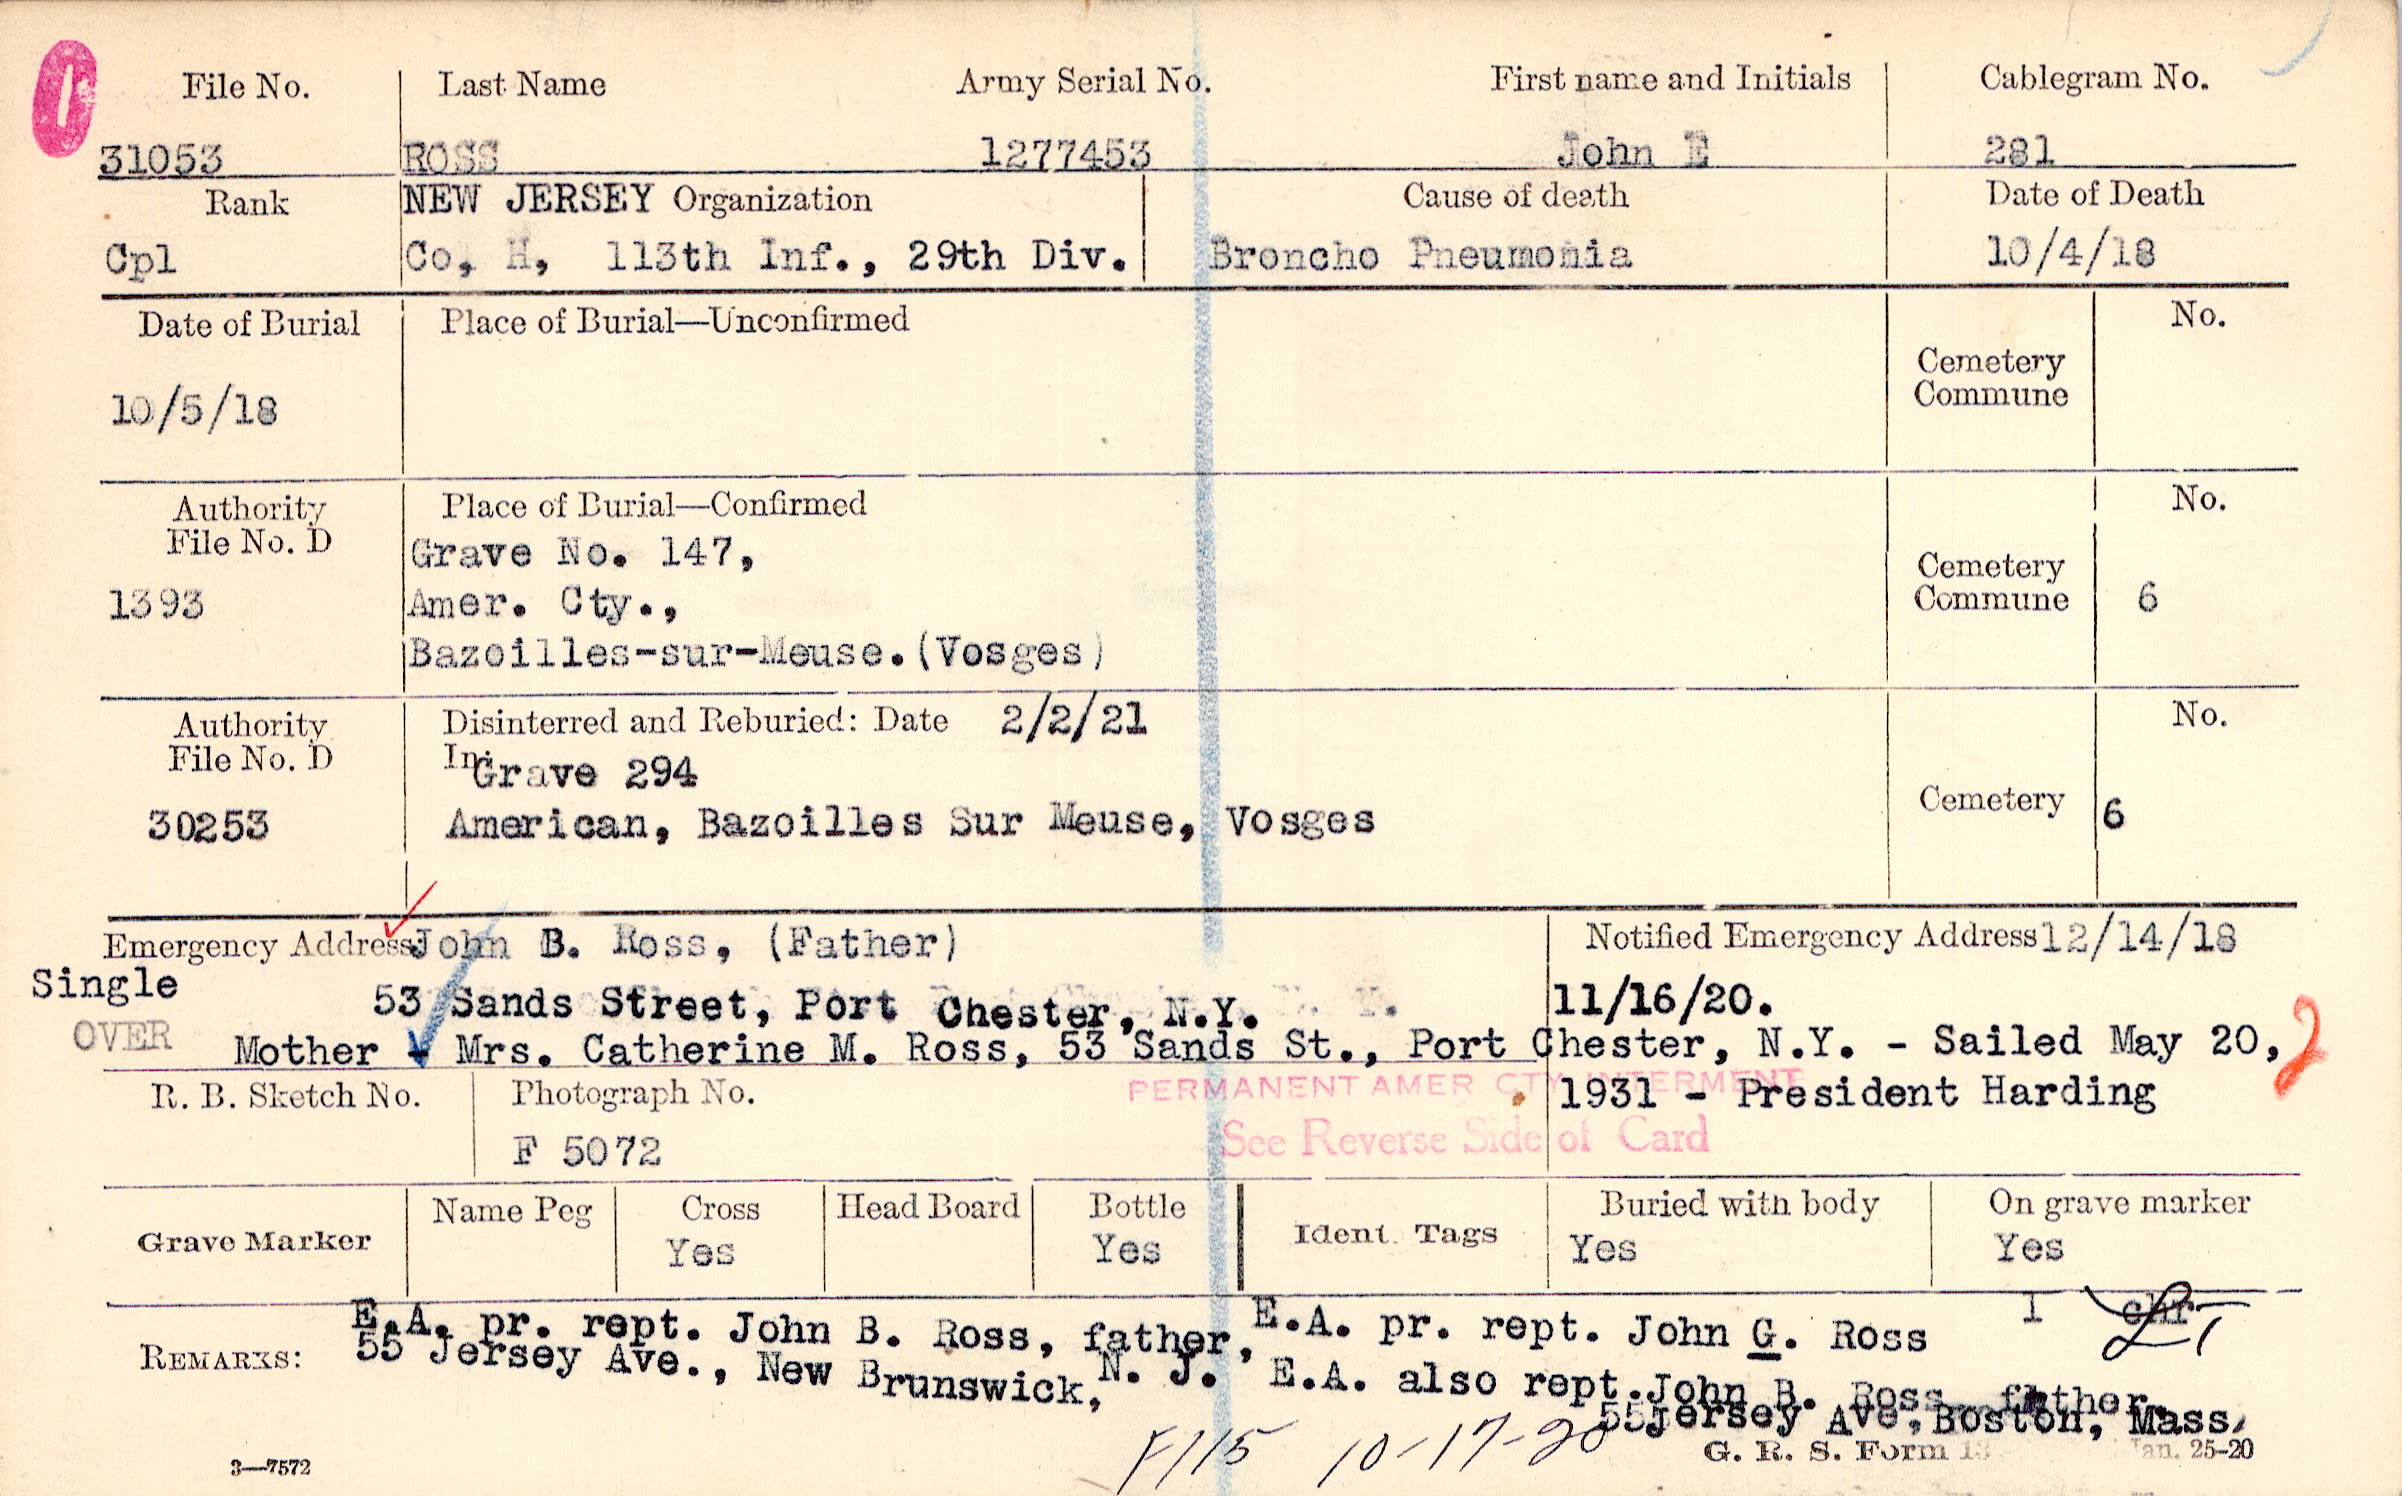 File No. Last Name Army Serial No. First name and Initials Cablegram No.
31053 ROSS 1277453 John E 281
Rank NEW JERSEY Organization Cause of death Date of Death
Cpl Co, H, 113th Inf., 29th Div. Broncho Pneumonia 10/4/18
Date of Burial Place of Burial—Unconfirmed No.
Cemetery
Commune
10/5/18
Authority Place of Burial—Confirmed No.
File No. D
Grave No. 147,
Cemetery
1393 Amer. Cty., Commune 6
Bazoilles-sur-Meuse.(Vosges)
Authority Disinterred and Reburied: Date 2/2/21 No.
File No. D In:
Grave 294
30253 American, Bazoilles Sur Meuse, Vosges Cemetery 6
Emergency Address John B. Ross, (Father) Notified Emergency Address 12/14/18
Single
53 Sands Street, Port Chester, N.Y. 11/16/20.
OVER
Mother - Mrs. Catherine M. Ross, 53 Sands St., Port Chester, N.Y. - Sailed May 20, 2
1931 - President Harding
PERMANENT AMER CTY INTERMENT
See Reverse Side of Card
R. B. Sketch No. Photograph No.
F 5072
Grave Marker Name Peg Cross Head Board Bottle Ident. Tags Buried with body On grave marker
Yes Yes Yes Yes
1 chr
REMARKS: E.A. pr. rept. John B. Ross, father, E.A. pr. rept. John G. Ross
55 Jersey Ave., New Brunswick, N. J. E.A. also rept. John B. Ross father
55 Jersey Ave, Boston, Mass.
F115 10-17-20
3—7572 G. R. S. Form 13 Jan. 25-20